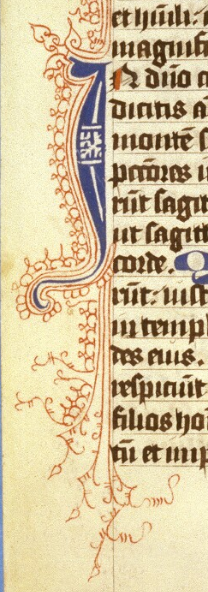 et hũili:
magnifi
IN dño c
dicitis a
montẽ s
pctores i
rũt sagit
ut sagitt
corde. Q
rũt: iust
in templ
des eius.
respiciũt
filios ho
tũ et imp